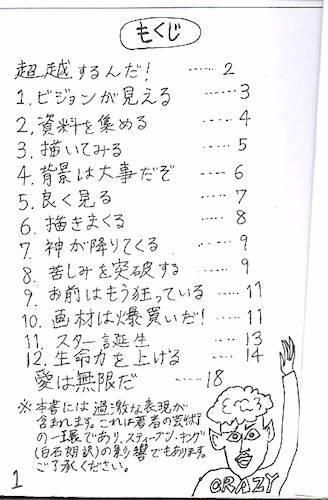 もくじ
超越するんだ! ‥‥‥ 2
1.ビジョンが見える ‥‥‥3
2.資料を集める ‥‥‥ 4
3.描いてみる ‥‥‥ 5
4.背景は大事だぞ ‥‥‥ 6
5.良く見る ‥‥‥ 7
6.描きまくる ‥‥‥ 8
7.神が降りてくる ‥‥‥ 9
8.苦しみを突破する ‥‥‥ 9
9.お前はもう狂っている ‥‥‥11
10.画材は爆買いだ! ‥‥‥11
11.スター誕生 ‥‥‥13
12.生命力を上げる ‥‥‥14
愛は無限だ ‥‥‥18
※本書には過激な表現が
含まれます。これは著者の芸術
の一環であり、スティーブン・キング
(白石朗訳)の影響でもあります。
ご了承ください。
1
CRAZY